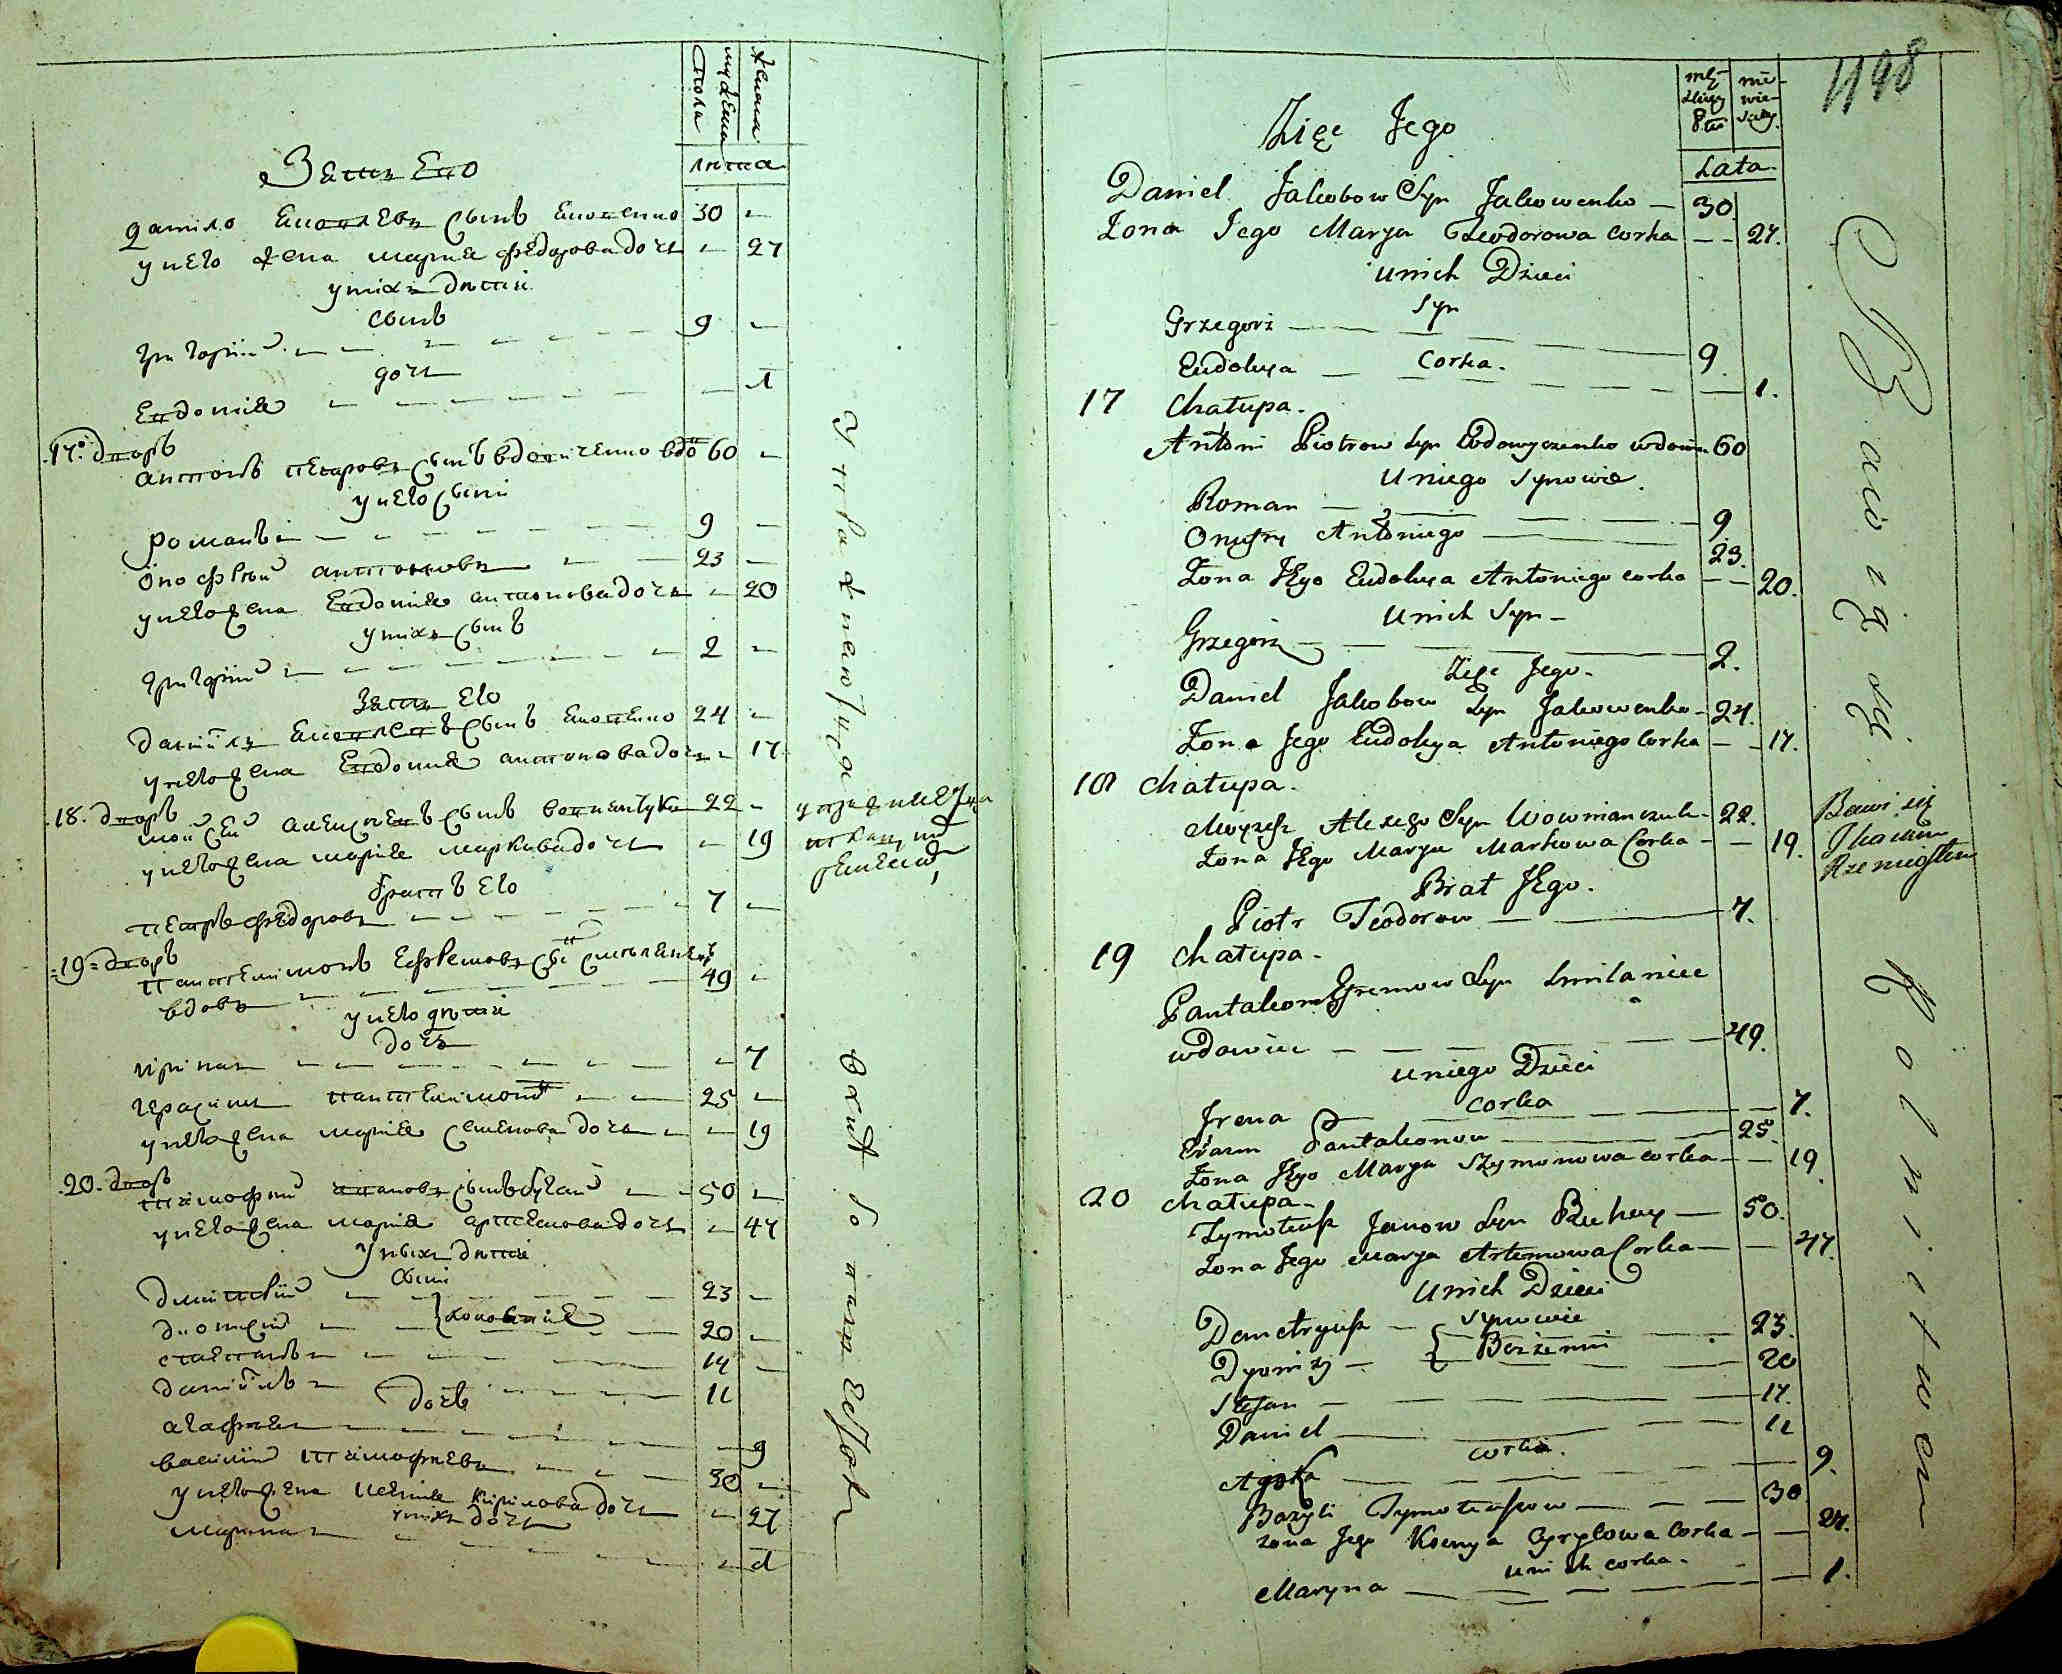 мужеска пола
женска
лѣта
Зять Его
данило Яковлевъ сынъ Яковенко 30 -
у него жена мария федорова дочь - 27
у них дѣти
сынъ
григорий 9 -
дочь
Евдокия - 1
17. дворъ
антонъ петровъ сынъ вдовиченко вдов 60 -
у него сыни
романъ 9 -
онофрий антоновъ 23 -
у него жена Евдокия антонова дочь - 20
у них сынъ
григорий 2 -
Зять Его
данилъ Яковлевъ сынъ Яковенко 24 -
у него жена Евдокия антонова дочь - 17
18. дворъ
мойсей алексѣевъ сынъ 22 -
у него жена мария маркова дочь - 19
братъ Его
петръ федоровъ 7 -
19 дворъ
пантелимонъ Ефремовъ сынъ
вдовъ 49 -
у него дѣти
дочь
ирина - 7
герасимъ пантелимонов 25 -
у него жена мария семенова дочь - 19
20. дворъ
тимофий ивановъ сынъ бугай 50 -
у него жена мария артемова дочь - 47
у них дѣти
сыни
димитрий 23 -
дионисий холостие 20 -
степанъ 14 -
данийлъ 11
дочь
агафия - 9
василий тимофиевъ 30 -
у него жена ксения кирилова дочь - 27
у них дочь
марина - 1
1198
męzkiey Płci
niewieściey
Lata
Zięć Jego
Daniel Jakobow Syn Jakowenko — 30
Zona Jego Marya Teodorowa corka — 27.
u nich Dzieci
Syn
Grzegorz 9.
Corka.
Eudokya 1.
17 Chałupa.
Antoni Piotrow Syn Wdowyczenko wdowiec 60
U niego Synowie.
Roman 9
Onufry Antoniego 23.
Zona Jego Eudokya Antoniego corka — 20.
U nich Syn —
Grzegorz 2.
Zięć Jego.
Daniel Jakobow Syn Jakowenko — 24.
Zona Jego Eudokya Antoniego Corka — 17.
18 Chałupa.
Moyzesz Alexego Syn 22.
Zona Jego Marya Markowa Corka — 19.
Bawi się
Tkackim
Rzemiosłem
Brat Jego.
Piotr Teodorow — 7.
19 Chałupa.
Pantaleon Efremow Syn Smilaniec
wdowiec 49.
u niego Dzieci
corka
Irena 7.
Erazm Pantaleonow 25.
Zona Jego Marya Szymonowa corka — 19
20 Chałupa —
Tymoteusz Janow Syn Buhay — 50.
Zona Jego Marya Artemowa Corka — 47.
U nich Dzieci
Synowie
Demetryusz 23.
Dyonizy Bezżenni 20
Stefan 14.
Daniel 11
corka.
Agafia 9.
Bazyli Tymoteuszow 30
zona Jego Ksenya Cyrylowa Corka — 27.
u nich corka.
Maryna 1.
Bawią się Rolnictwem